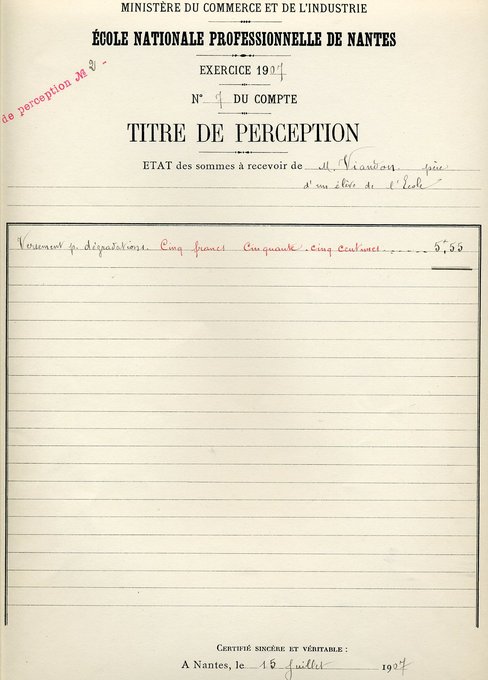 MINISTÈRE DU COMMERCE ET DE L'INDUSTRIE
ÉCOLE NATIONALE PROFESSIONNELLE DE NANTES
de perception № 2 -
EXERCICE 1907
N° 7 DU COMPTE
TITRE DE PERCEPTION
ETAT des sommes à recevoir de M. Viandon, père
d'un élève de l'Ecole
Versement p. dégradations. Cinq francs Cinquante-cinq centimes...... 5f,55
CERTIFIÉ SINCÈRE ET VÉRITABLE :
A Nantes, le 15 Juillet 1907